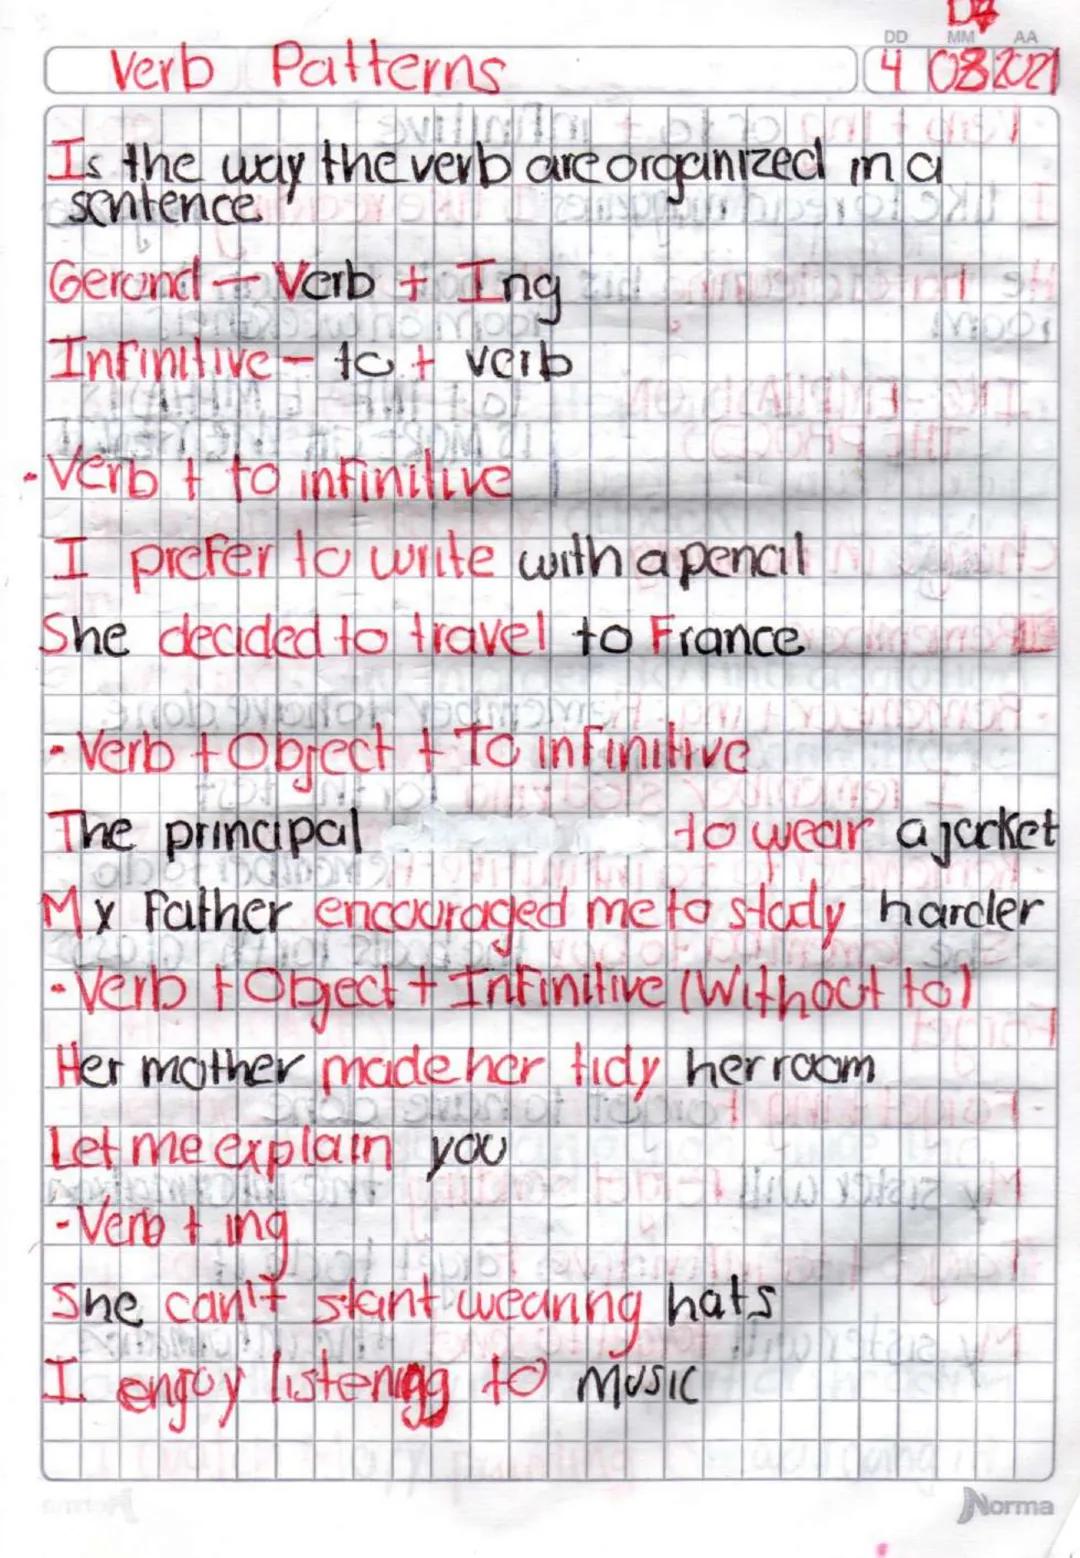 D4
DD MM AA
Verb Patterns 4 08 2021
Is the way the verb are organized in a
sentence
Gerund – Verb + Ing
Infinitive – to + verb
- Verb + to infinitive
I prefer to write with a pencil
She decided to travel to France
- Verb + Object + To infinitive
The principal to wear a jacket
My Father encouraged me to study harder
- Verb + Object + Infinitive (Without to)
Her mother made her tidy her room
Let me explain you
- Verb + ing
She can't stant wearing hats
I enjoy listening to music
Norma